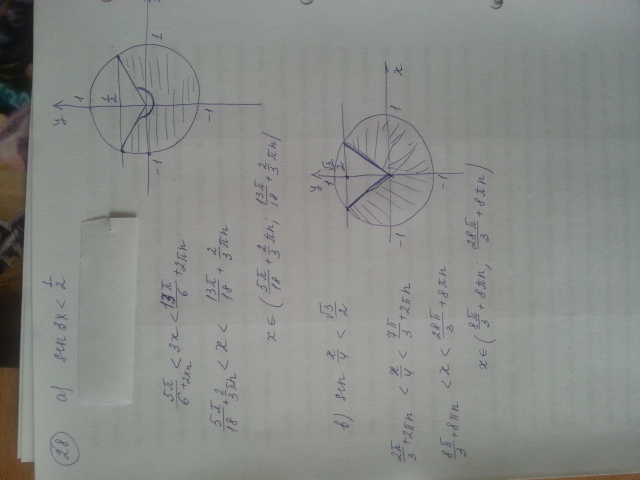 28 а) sin 3x < 1/2
5π/6 + 2πn < 3x < 13π/6 + 2πn
5π/18 + 2/3 πn < x < 13π/18 + 2/3 πn
x ∈ (5π/18 + 2/3 πn; 13π/18 + 2/3 πn)
y
1
1/2
1
-1
-1
в) sin x/4 < √3/2
2π/3 + 2πn < x/4 < 7π/3 + 2πn
8π/3 + 8πn < x < 28π/3 + 8πn
x ∈ (8π/3 + 8πn; 28π/3 + 8πn)
y
1
√3/2
1
x
-1
-1